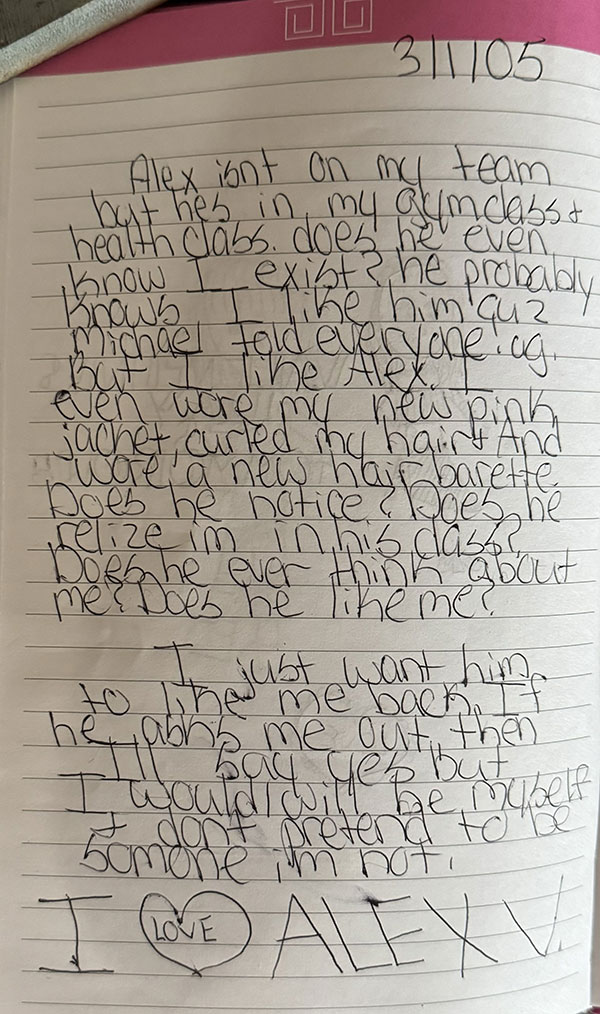 3/1/05
Alex isnt on my team
but hes in my gymclass +
health class. does he even
know I exist? he probably
knows I like him cuz
Michael told everyone. ug.
But I like Alex. I
even wore my new pink
jacket, curled my hair + And
wore a new hair barette.
Does he notice? Does he
relize im in his class?
Does he ever think about
me? Does he like me?
I just want him
to like me back. If
he asks me out, then
I'll say yes but
I would/will be myself
+ dont pretend to be
somone im not.
I LOVE ALEX V.